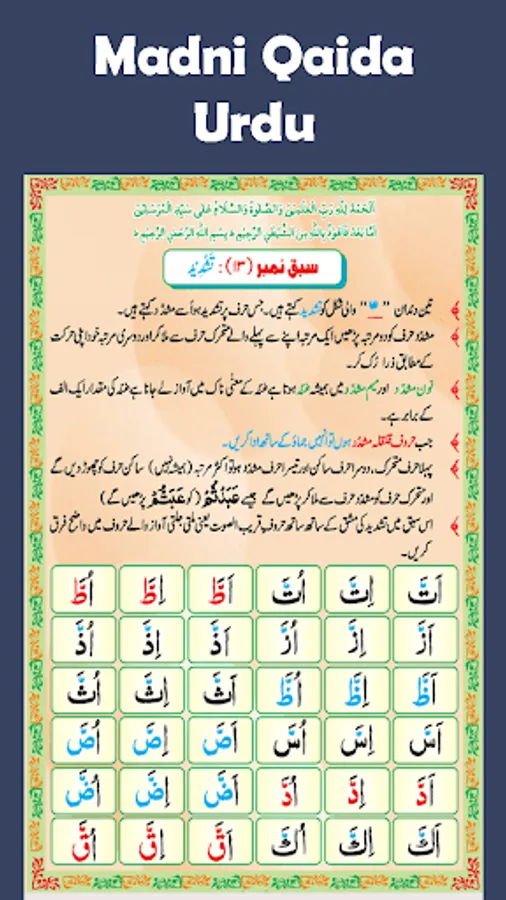 Madni Qaida
Urdu
اَلْحَمْدُ لِلّٰهِ رَبِّ الْعٰلَمِيْنَ وَالصَّلٰوةُ وَالسَّلَامُ عَلٰى سَيِّدِ الْمُرْسَلِيْنَ
اَمَّا بَعْدُ فَاَعُوْذُ بِاللّٰهِ مِنَ الشَّيْطٰنِ الرَّجِيْمِ ؕ بِسْمِ اللّٰهِ الرَّحْمٰنِ الرَّحِيْمِ ؕ
سبق نمبر (۱۳) : تَشْدِیْد
تین دندان " ّ " والی شکل کو تشدید کہتے ہیں۔ جس حرف پر تشدید ہو اُسے مشدّد کہتے ہیں۔
مشدّد حرف کو دو مرتبہ پڑھیں ایک مرتبہ اپنے سے پہلے والے متحرک حرف سے ملا کر اور دوسری مرتبہ خود اپنی حرکت
کے مطابق ذرا رُک کر۔
نون مشدّد اور میم مشدّد میں ہمیشہ غنّہ ہوتا ہے غنّہ کے معنٰی ناک میں آواز لے جانا ہے غنّہ کی مقدار ایک الف
کے برابر ہے۔
جب حروف قلقلہ مشدّد ہوں تو انہیں جماؤ کے ساتھ ادا کریں۔
پہلا حرف متحرک، دوسرا حرف ساکن اور تیسرا حرف مشدّد ہو تو اکثر مرتبہ (ہمیشہ نہیں) ساکن حرف کو چھوڑ دیں گے
اور متحرک حرف کو مشدّد حرف سے ملا کر پڑھیں گے جیسے عَبَدْتُّمْ (کو عَبَتُّمْ پڑھیں گے)
اس سبق میں تشدید کی مشق کے ساتھ ساتھ حروف قریب الصوت یعنی ملتی جلتی آواز والے حروف میں واضح فرق
کریں۔
اَتَّ اِتَّ اُتَّ اَطَّ اِطَّ اُطَّ
اَزَّ اِزَّ اُزَّ اَذَّ اِذَّ اُذَّ
اَظَّ اِظَّ اُظَّ اَثَّ اِثَّ اُثَّ
اَسَّ اِسَّ اُسَّ اَصَّ اِصَّ اُصَّ
اَدَّ اِدَّ اُدَّ اَضَّ اِضَّ اُضَّ
اَكَّ اِكَّ اُكَّ اَقَّ اِقَّ اُقَّ